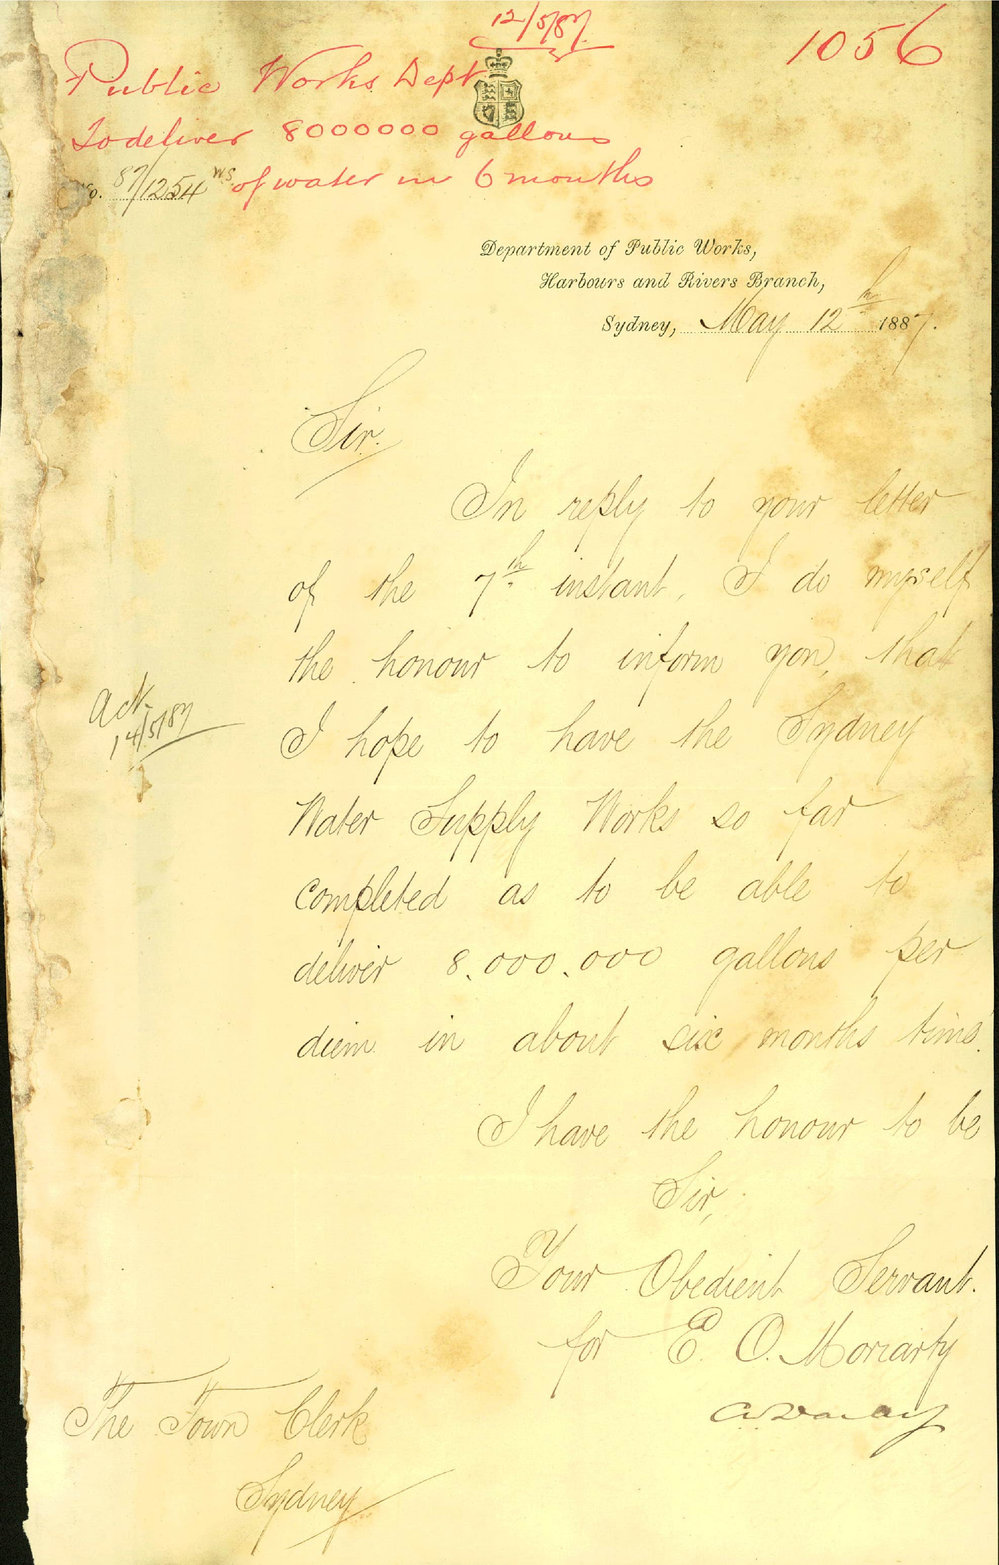 12/5/87.
1056
Public Works Dept
To deliver 8000000 gallons
No. 87/1254 WS of water in 6 months
Department of Public Works,
Harbours and Rivers Branch,
Sydney, May 12th 1887.
Sir.
In reply to your letter
of the 7th instant, I do myself
the honour to inform you, that
I hope to have the Sydney
Ack
14/5/87
Water Supply Works so far
completed as to be able to
deliver 8.000.000 gallons per
diem in about six months time.
I have the honour to be
Sir,
Your Obedient Servant.
for E. O. Moriarty
The Town Clerk
Sydney